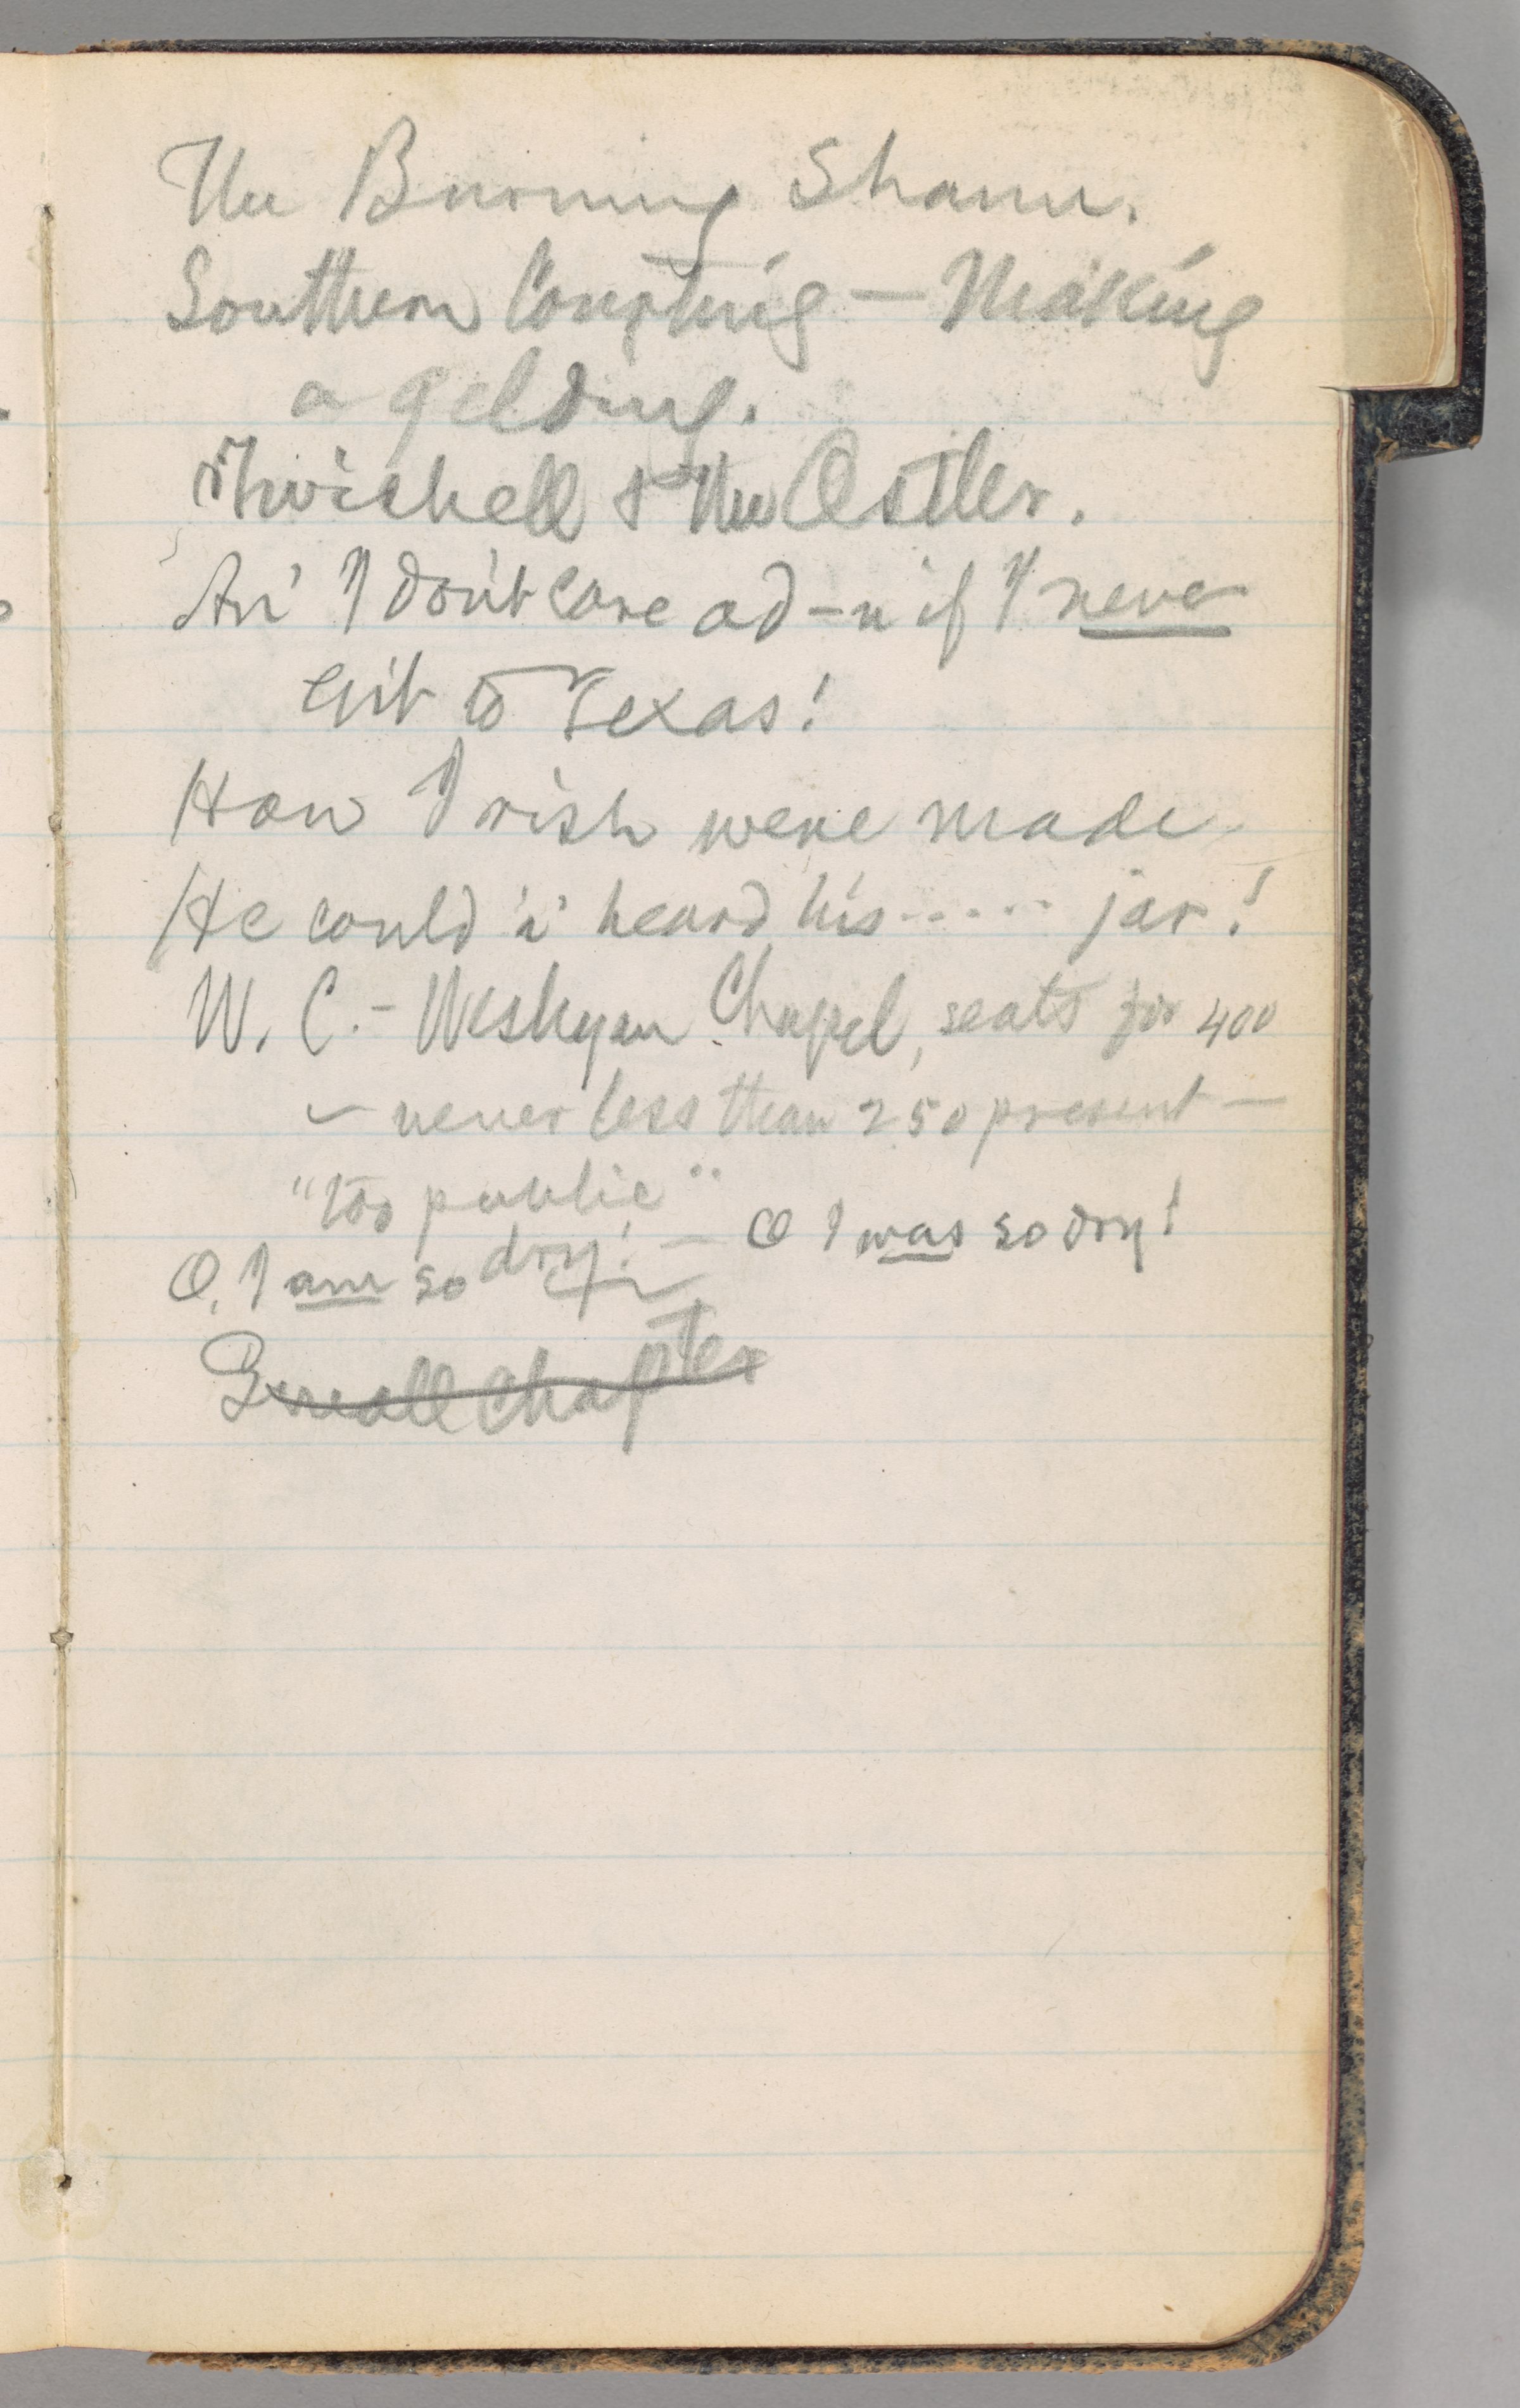 The Burning Shame.
Southern Courting — Making
a gelding.
Twichell & the Ostler.
An' I don't care a d—n if I never
git to Texas!
How Irish were made.
He could 'a' heard his ..... jar!
W. C. - Wesleyan Chapel, seats for 400
— never less than 250 present —
"too public"
O, I am so dry! — O I was so dry!
Small Chapter